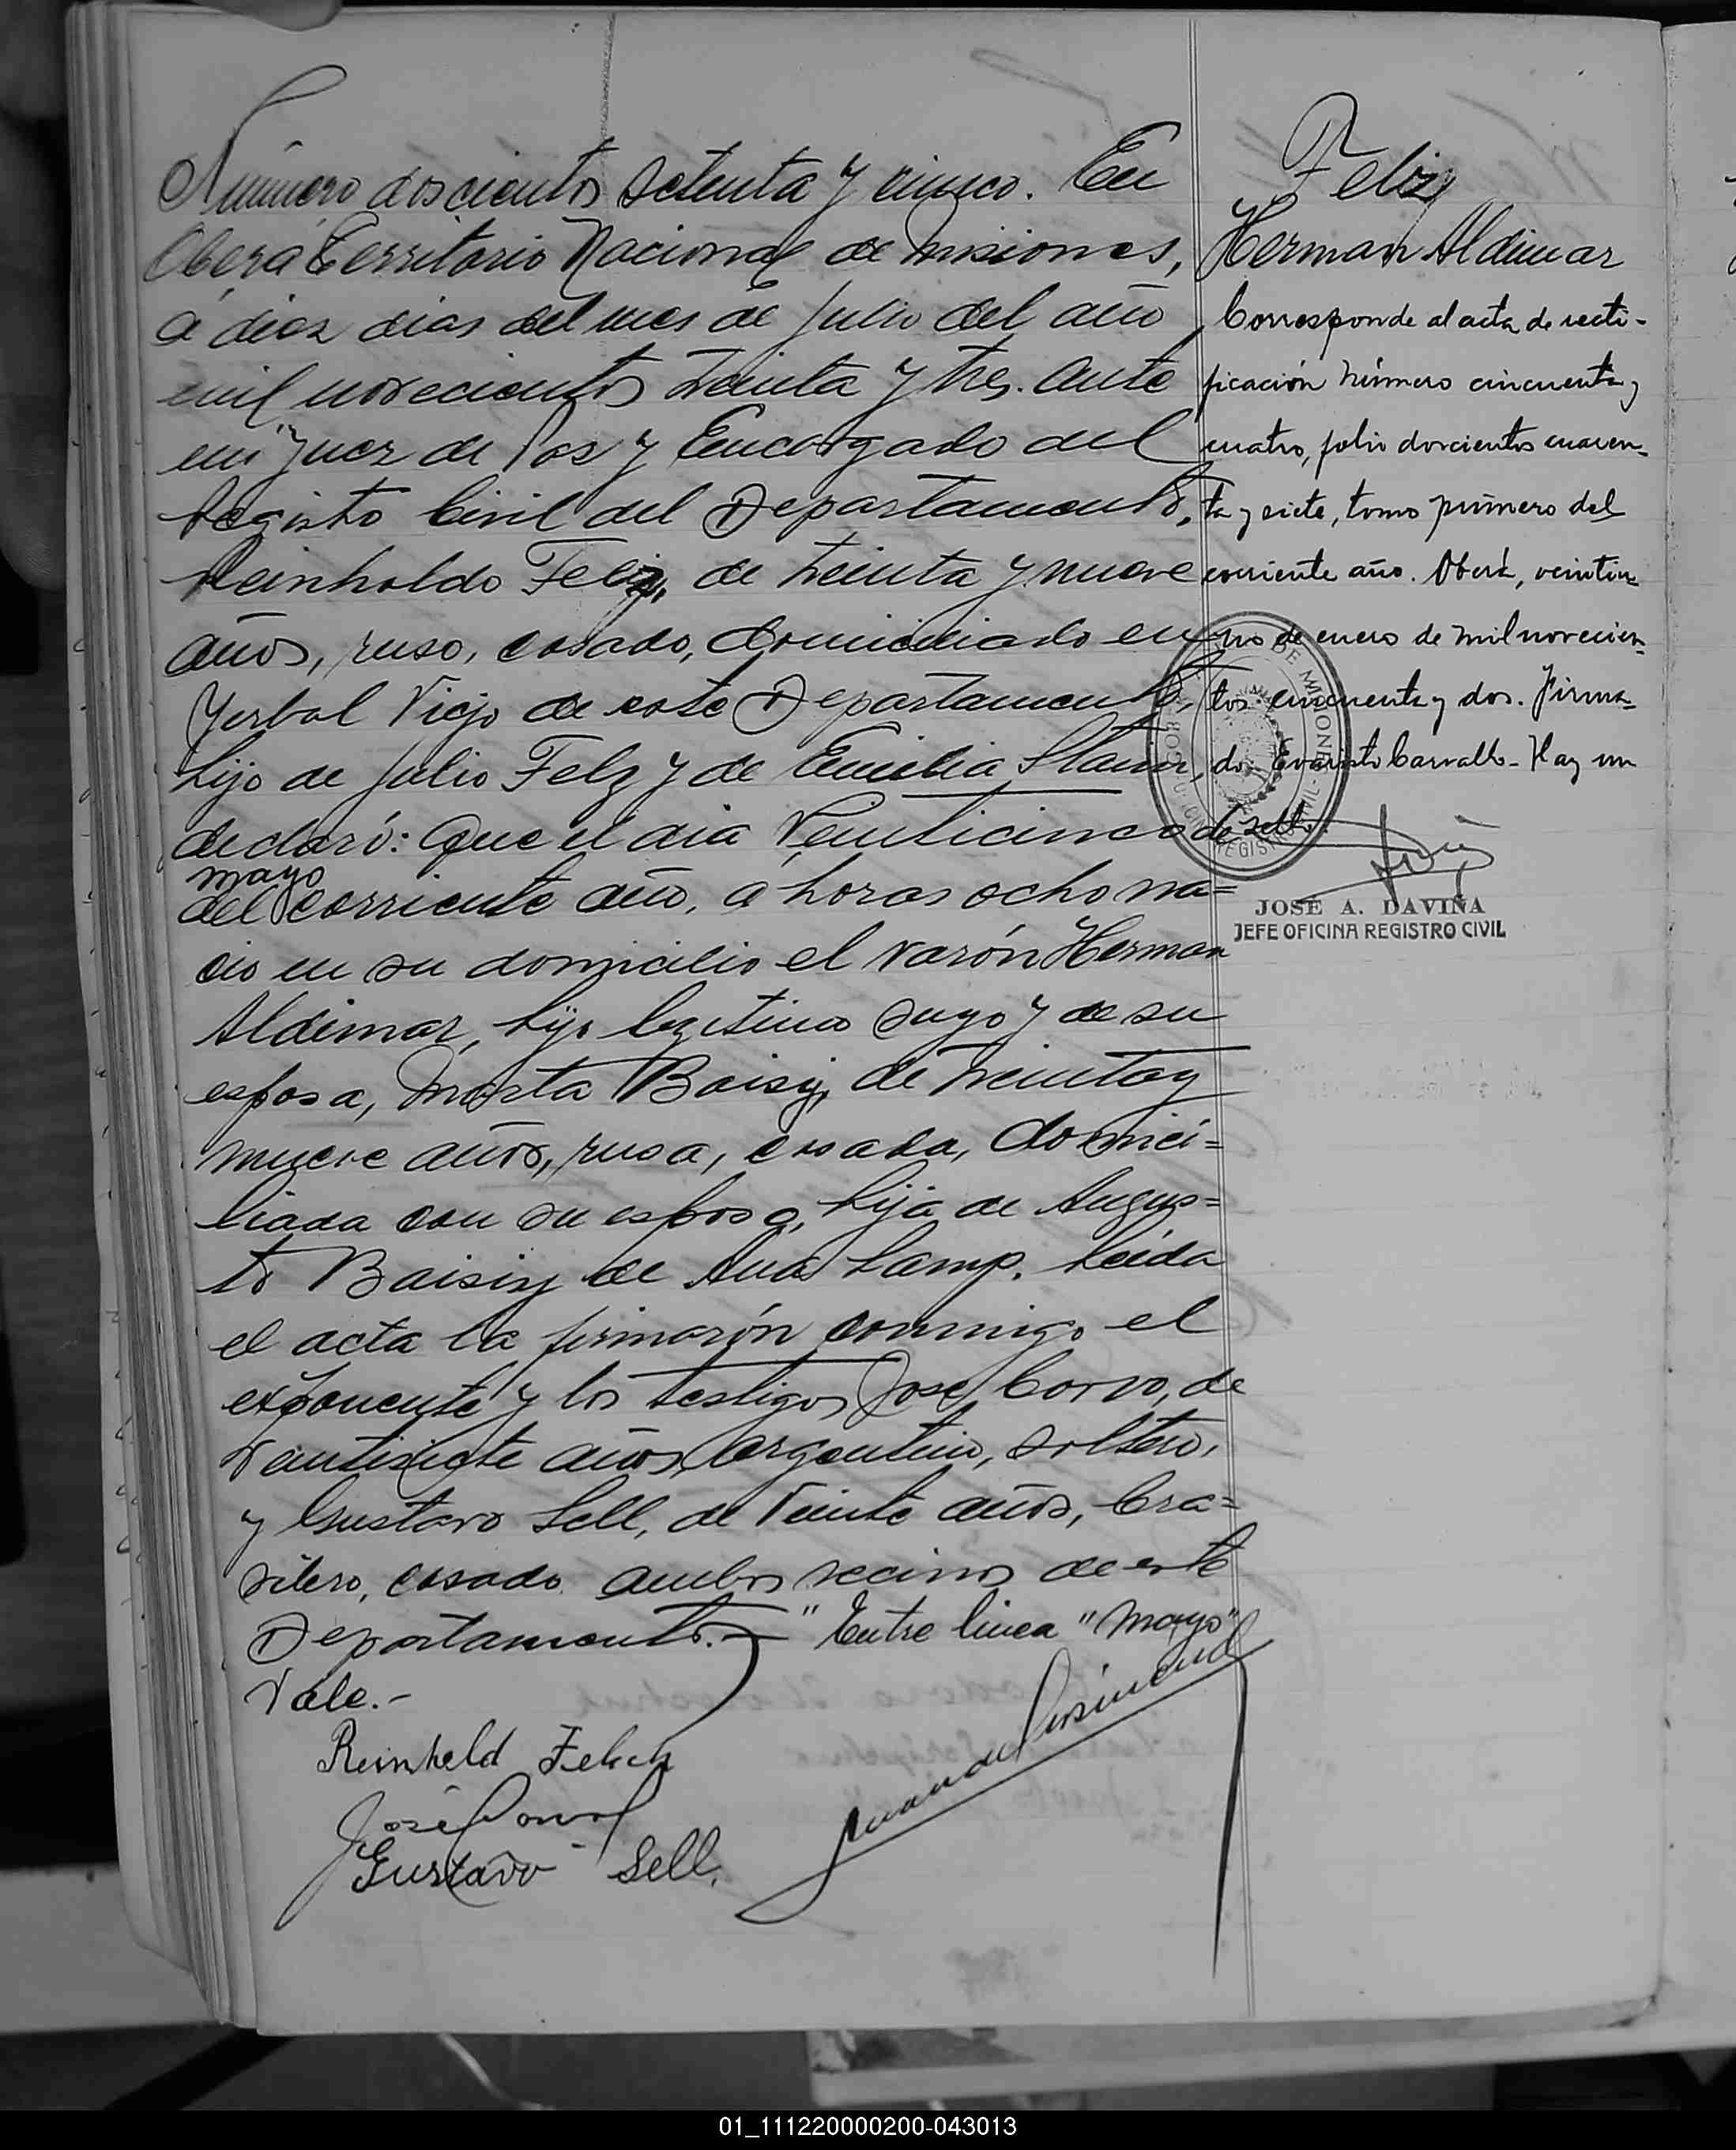 Número doscientos setenta y cinco. En
Oberá Territorio Nacional de Misiones,
a diez dias del mes de Julio del año
mil novecientos treinta y tres. ante
mi Juez de Paz y Encargado del
Registro Civil del Departamento,
Reinholdo Feliz, de treinta y nueve
años, ruso, casado, domiciliado en
Yerbal Viejo de este Departamento,
hijo de Julio Felz y de Emilia Stam,
declaró: Que el dia Veinticinco de
mayo
del corriente año, a horas ocho na=
cio en su domicilio el varón Herman
Aldimar, hijo legitimo suyo y de su
esposa, Marta Baisy, de treinta y
nueve años, rusa, casada, domici=
liada con su esposo, hija de Augus=
to Baisiy de Ana Lamp. Leida
el acta la firmarón conmigo el
exponente y los testigos Jose Corvo, de
Veintisiete años, argentino, soltero,
y Gustavo Sell, de Veinte años, bra=
silero, casado ambos vecinos de este
Departamento.- "Entre linea "Mayo"
Vale.-
Reinheld Felich
José
Gustavo Sell.
Feliz
Herman Aldimar
Corresponde al acta de recti-
ficación número cincuenta y
cuatro, folio doscientos cuaren-
ta y siete, tomo primero del
corriente año. Oberá, veintiu-
no de enero de mil novecien-
tos cincuenta y dos. Firma-
do: Evaristo Carvallo - Hay un
sello.
DE MISIONES
REGISTRO CIVIL
JOSE A. DAVIÑA
JEFE OFICINA REGISTRO CIVIL
01_111220000200-043013